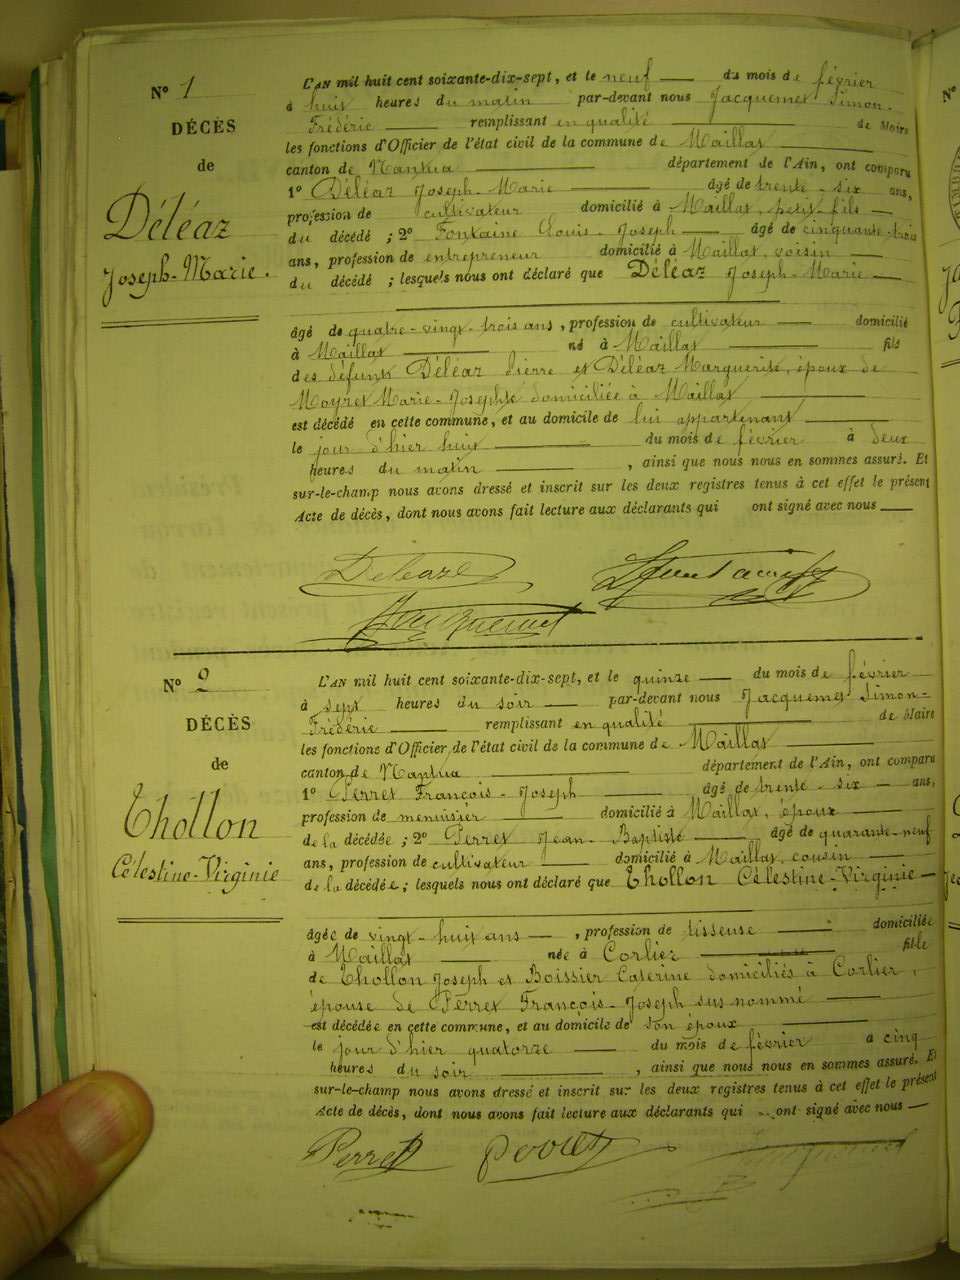 N° 1
DÉCÈS
de
Déléaz
Joseph-Marie.
L'AN mil huit cent soixante-dix-sept, et le neuf du mois de février
à huit heures du matin par-devant nous Jacquemet Simon-
Frédéric remplissant en qualité de Maire
les fonctions d'Officier de l'état civil de la commune de Maillat
canton de Nantua département de l'Ain, ont comparu
1° Déléaz Joseph-Marie âgé de trente-six ans,
profession de cultivateur domicilié à Maillat, petit-fils
du décédé ; 2° Fontaine Louis-Joseph âgé de cinquante-trois
ans, profession de entrepreneur domicilié à Maillat, voisin
du décédé ; lesquels nous ont déclaré que Déléaz Joseph-Marie
âgé de quatre-vingt-trois ans, profession de cultivateur domicilié
à Maillat né à Maillat fils
des défunts Déléaz Pierre et Déléaz Marguerite, époux de
Moyret Marie-Josephte domiciliée à Maillat
est décédé en cette commune, et au domicile de lui appartenant
le jour d'hier huit du mois de février à deux
heures du matin, ainsi que nous nous en sommes assuré. Et
sur-le-champ nous avons dressé et inscrit sur les deux registres tenus à cet effet le présent
Acte de décès, dont nous avons fait lecture aux déclarants qui ont signé avec nous
Deleaze LFontaine
Jacquemet
N° 2
DÉCÈS
de
Thollon
Célestine-Virginie
L'AN mil huit cent soixante-dix-sept, et le quinze du mois de février
à sept heures du soir par-devant nous Jacquemet Simon-
Frédéric remplissant en qualité de Maire
les fonctions d'Officier de l'état civil de la commune de Maillat
canton de Nantua département de l'Ain, ont comparu
1° Perret François-Joseph âgé de trente-six ans,
profession de menuisier domicilié à Maillat, époux
de la décédée ; 2° Perret Jean-Baptiste âgé de quarante-neuf
ans, profession de cultivateur domicilié à Maillat, cousin
de la décédée ; lesquels nous ont déclaré que Thollon Célestine-Virginie
âgée de vingt-huit ans, profession de tisseuse domiciliée
à Maillat née à Corlier fille
de Thollon Joseph et Boissier Caterine domiciliés à Corlier,
épouse de Perret François-Joseph susnommé
est décédée en cette commune, et au domicile de son époux
le jour d'hier quatorze du mois de février à cinq
heures du soir, ainsi que nous nous en sommes assuré. Et
sur-le-champ nous avons dressé et inscrit sur les deux registres tenus à cet effet le présent
Acte de décès, dont nous avons fait lecture aux déclarants qui ont signé avec nous
Perret Perret Jacquemet